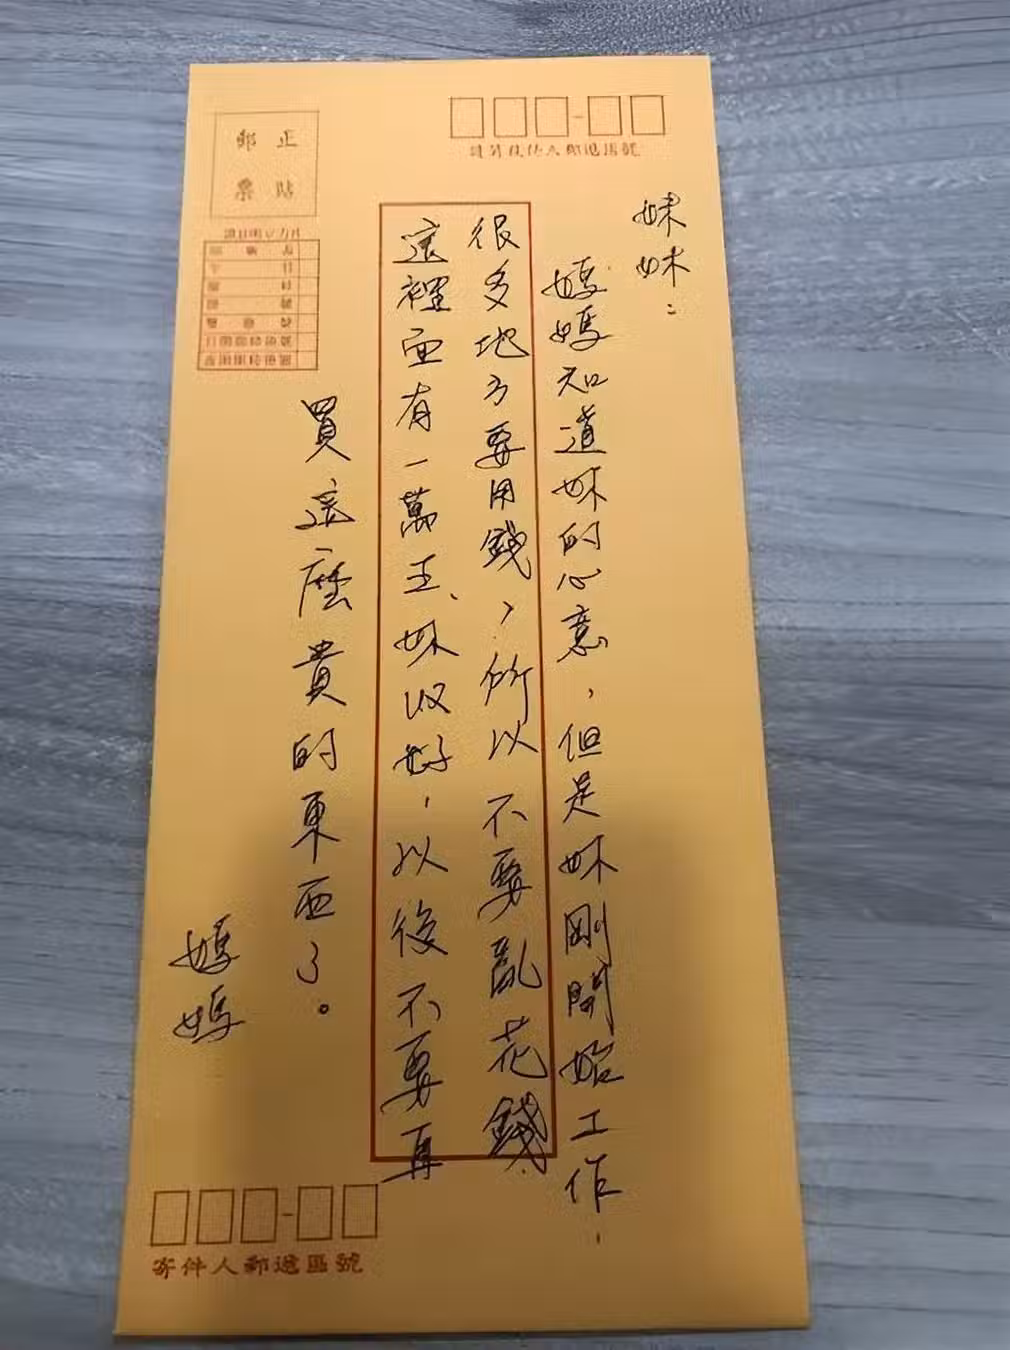 妹妹：
媽媽知道妹的心意，但是妹剛開始工作，
很多地方要用錢，所以不要亂花錢
這裡面有一萬五、妹收好，以後不要再
買這麼貴的東西了。
媽媽
正貼郵票
寄件人郵遞區號